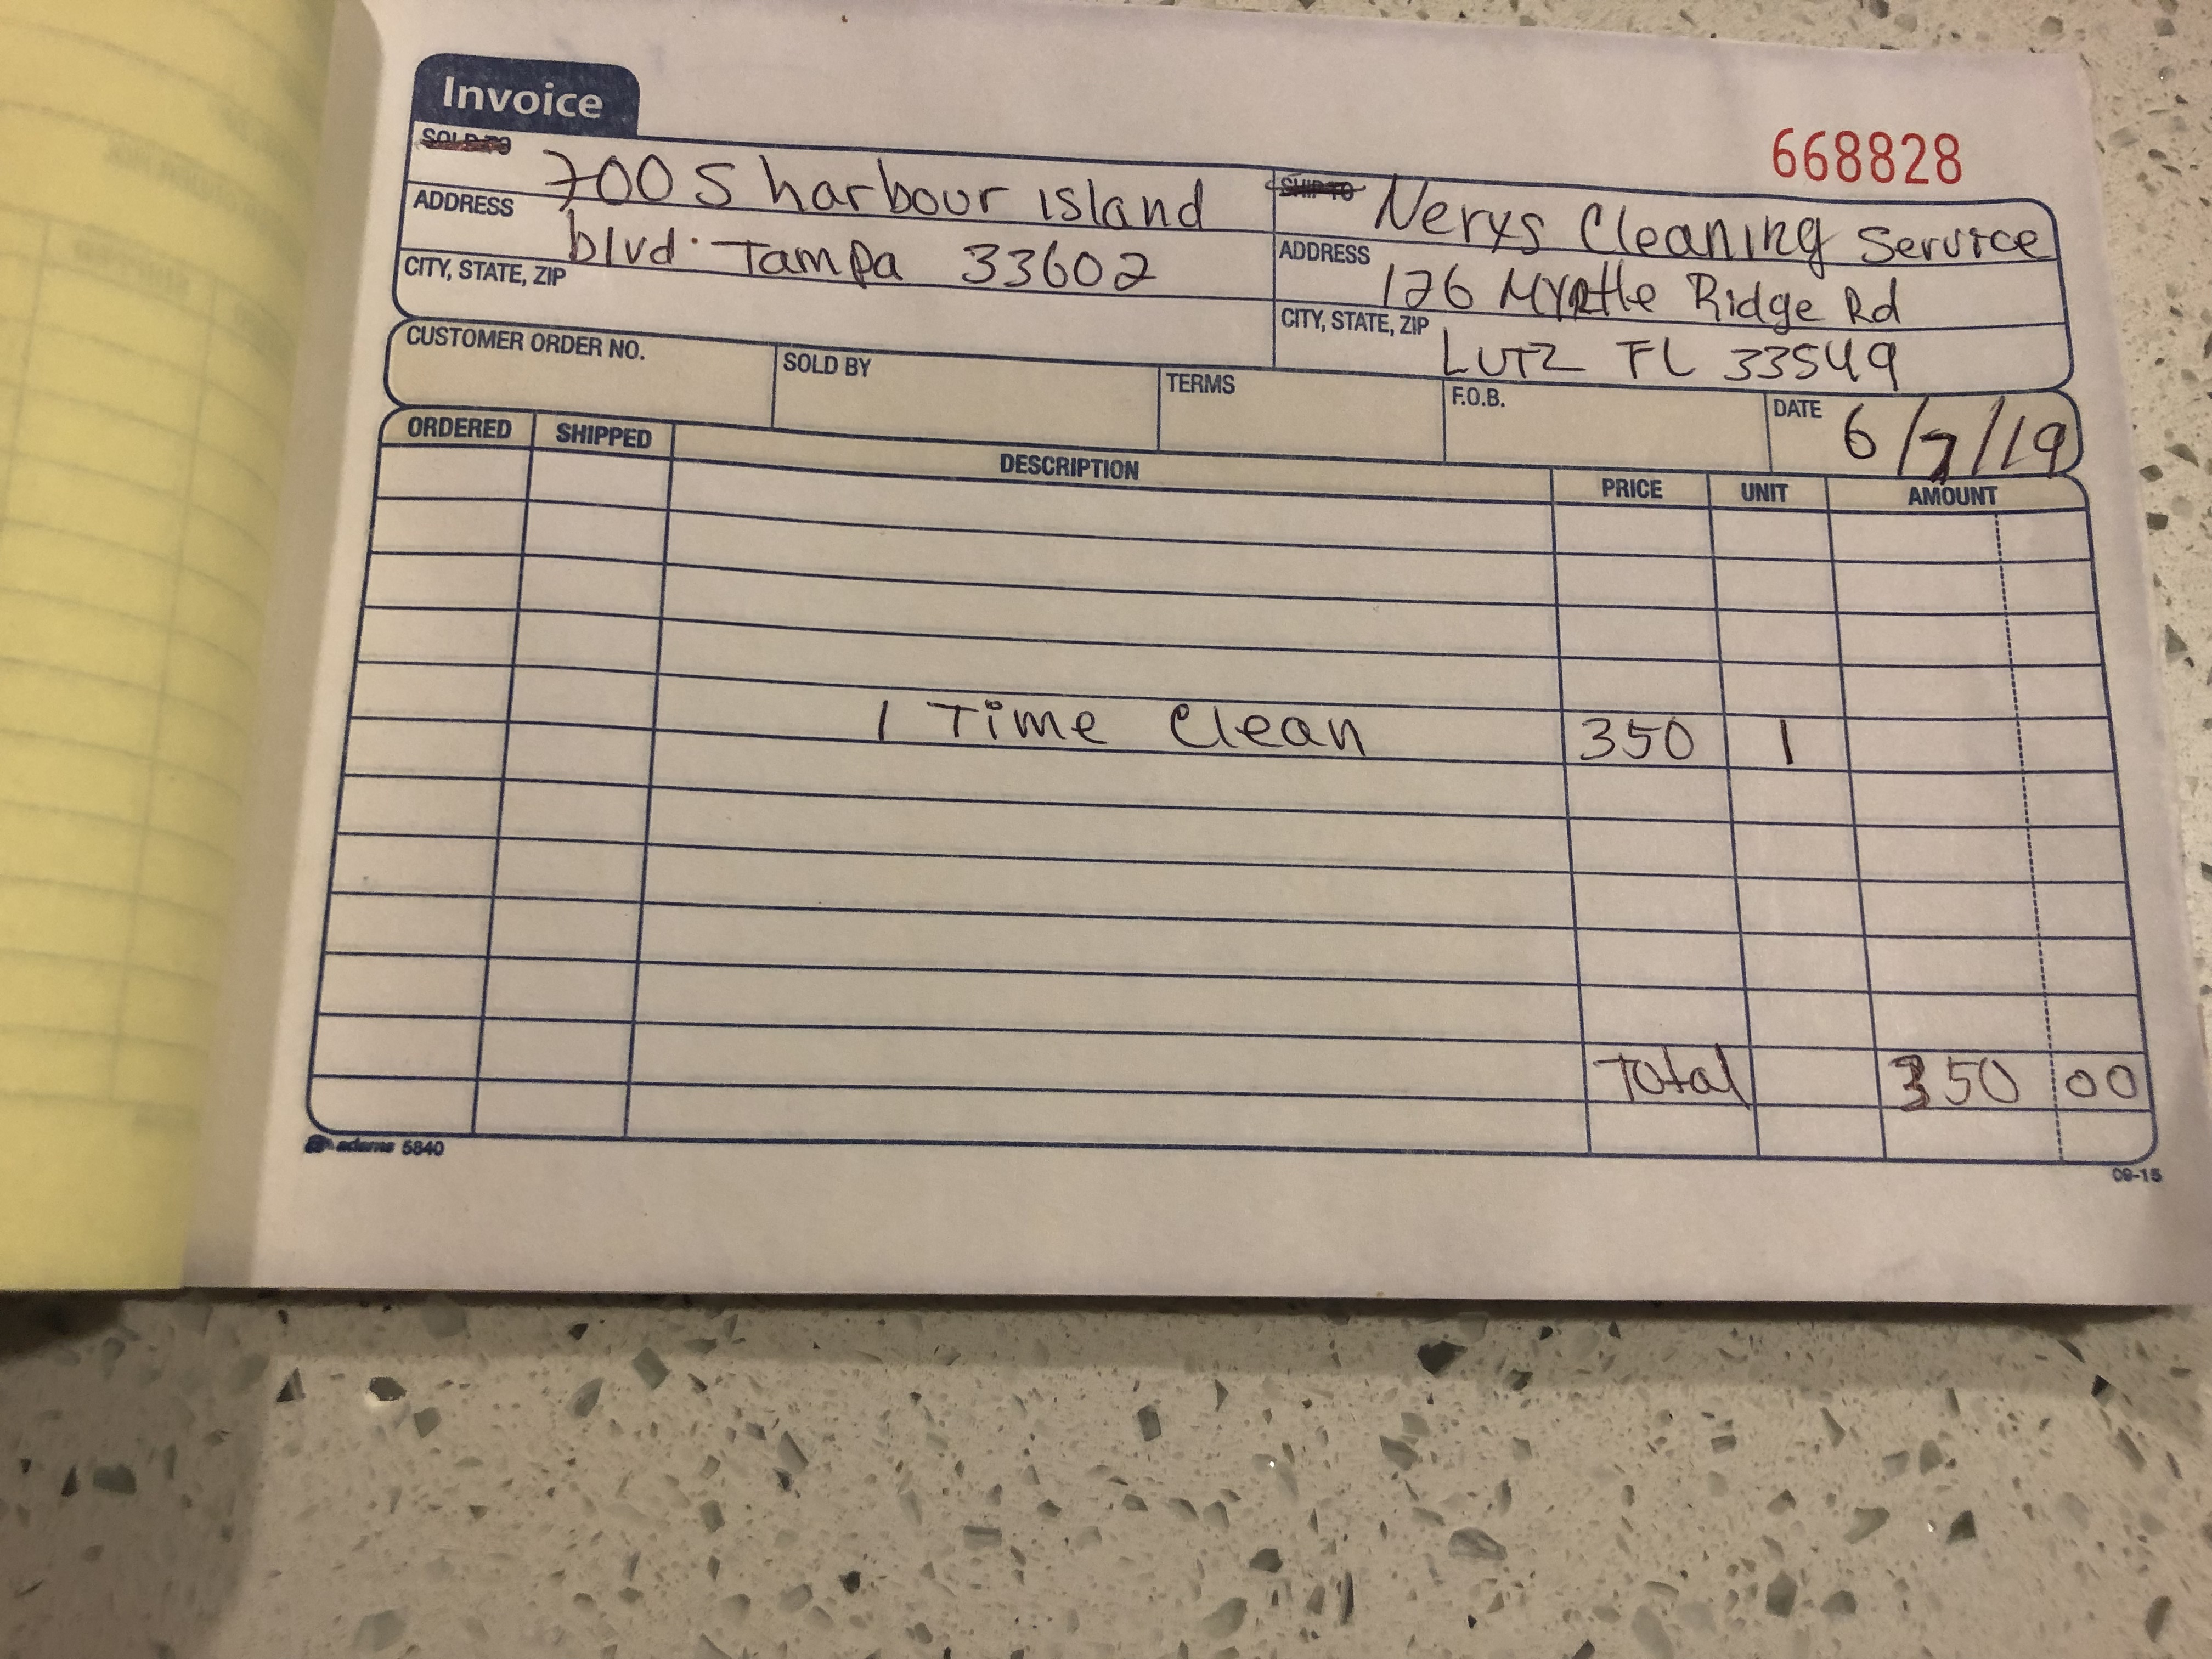 Invoice
668828
SOLD TO
ADDRESS 700 S harbour island
CITY, STATE, ZIP blvd. Tampa 33602
SHIP TO Nerys Cleaning Service
ADDRESS 126 Myrttle Ridge Rd
CITY, STATE, ZIP LUTZ FL 33549
CUSTOMER ORDER NO. SOLD BY TERMS F.O.B. DATE 6/7/19
ORDERED SHIPPED DESCRIPTION PRICE UNIT AMOUNT
1 Time Clean 350 1
Total 350 00
adams 5840 09-15